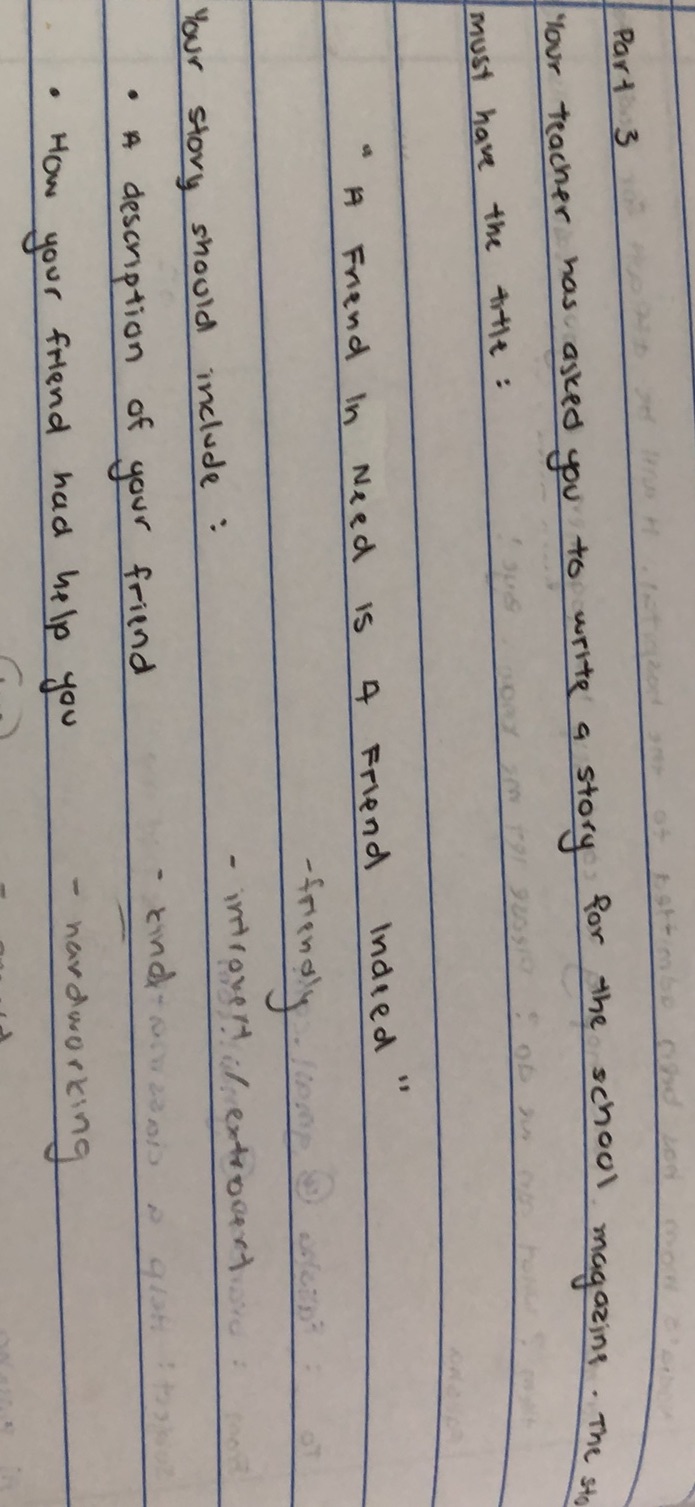 Part 3
Your teacher has asked you to write a story for the school magazine. The sto
must have the title :
" A Friend In Need Is A Friend Indeed "
-friendly
Your story should include : - introvert / extrovert
• A description of your friend - kind
• How your friend had help you - hardworking